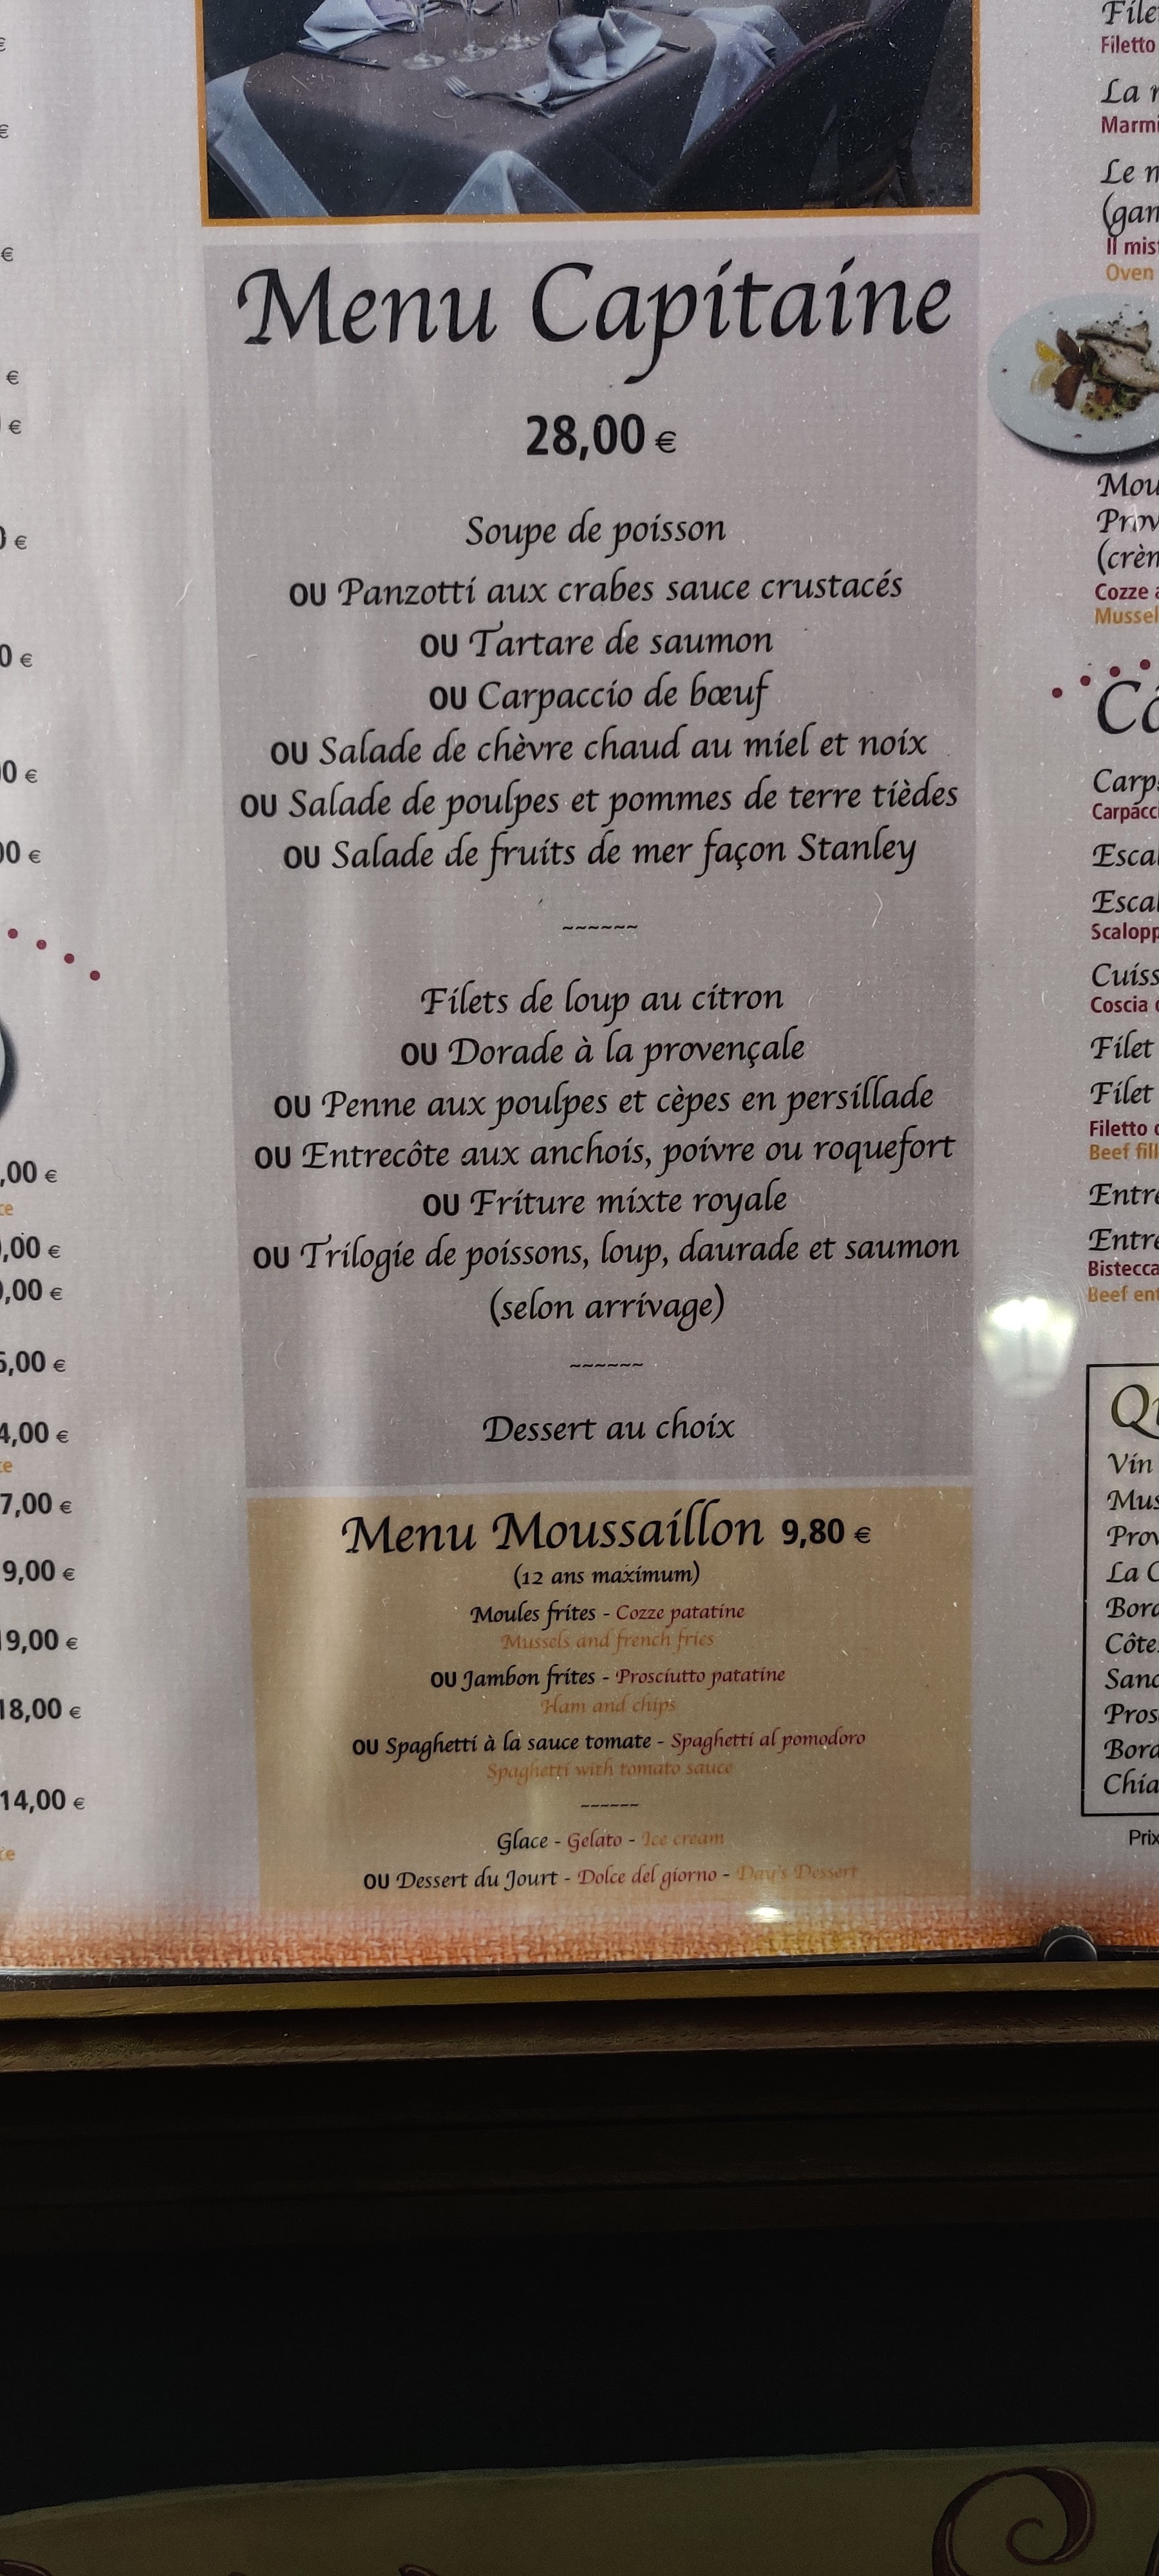 €
€
€
€
€
€
0 €
00 €
00 €
,00 €
,00 €
,00 €
,00 €
4,00 €
7,00 €
9,00 €
19,00 €
18,00 €
14,00 €
Menu Capitaine
28,00 €
Soupe de poisson
OU Panzotti aux crabes sauce crustacés
OU Tartare de saumon
OU Carpaccio de bœuf
OU Salade de chèvre chaud au miel et noix
OU Salade de poulpes et pommes de terre tièdes
OU Salade de fruits de mer façon Stanley
~~~~~~
Filets de loup au citron
OU Dorade à la provençale
OU Penne aux poulpes et cèpes en persillade
OU Entrecôte aux anchois, poivre ou roquefort
OU Friture mixte royale
OU Trilogie de poissons, loup, daurade et saumon
(selon arrivage)
~~~~~~
Dessert au choix
Menu Moussaillon 9,80 €
(12 ans maximum)
Moules frites - Cozze patatine
Mussels and french fries
OU Jambon frites - Prosciutto patatine
Ham and chips
OU Spaghetti à la sauce tomate - Spaghetti al pomodoro
Spaghetti with tomato sauce
~~~~~~
Glace - Gelato - Ice cream
OU Dessert du Jourt - Dolce del giorno - Day's Dessert
Filetto
La
Le
Il
Oven
Cozze
Filet
Filet
Filetto
Beef
Coscia
Bistecca
Beef
Vin
La